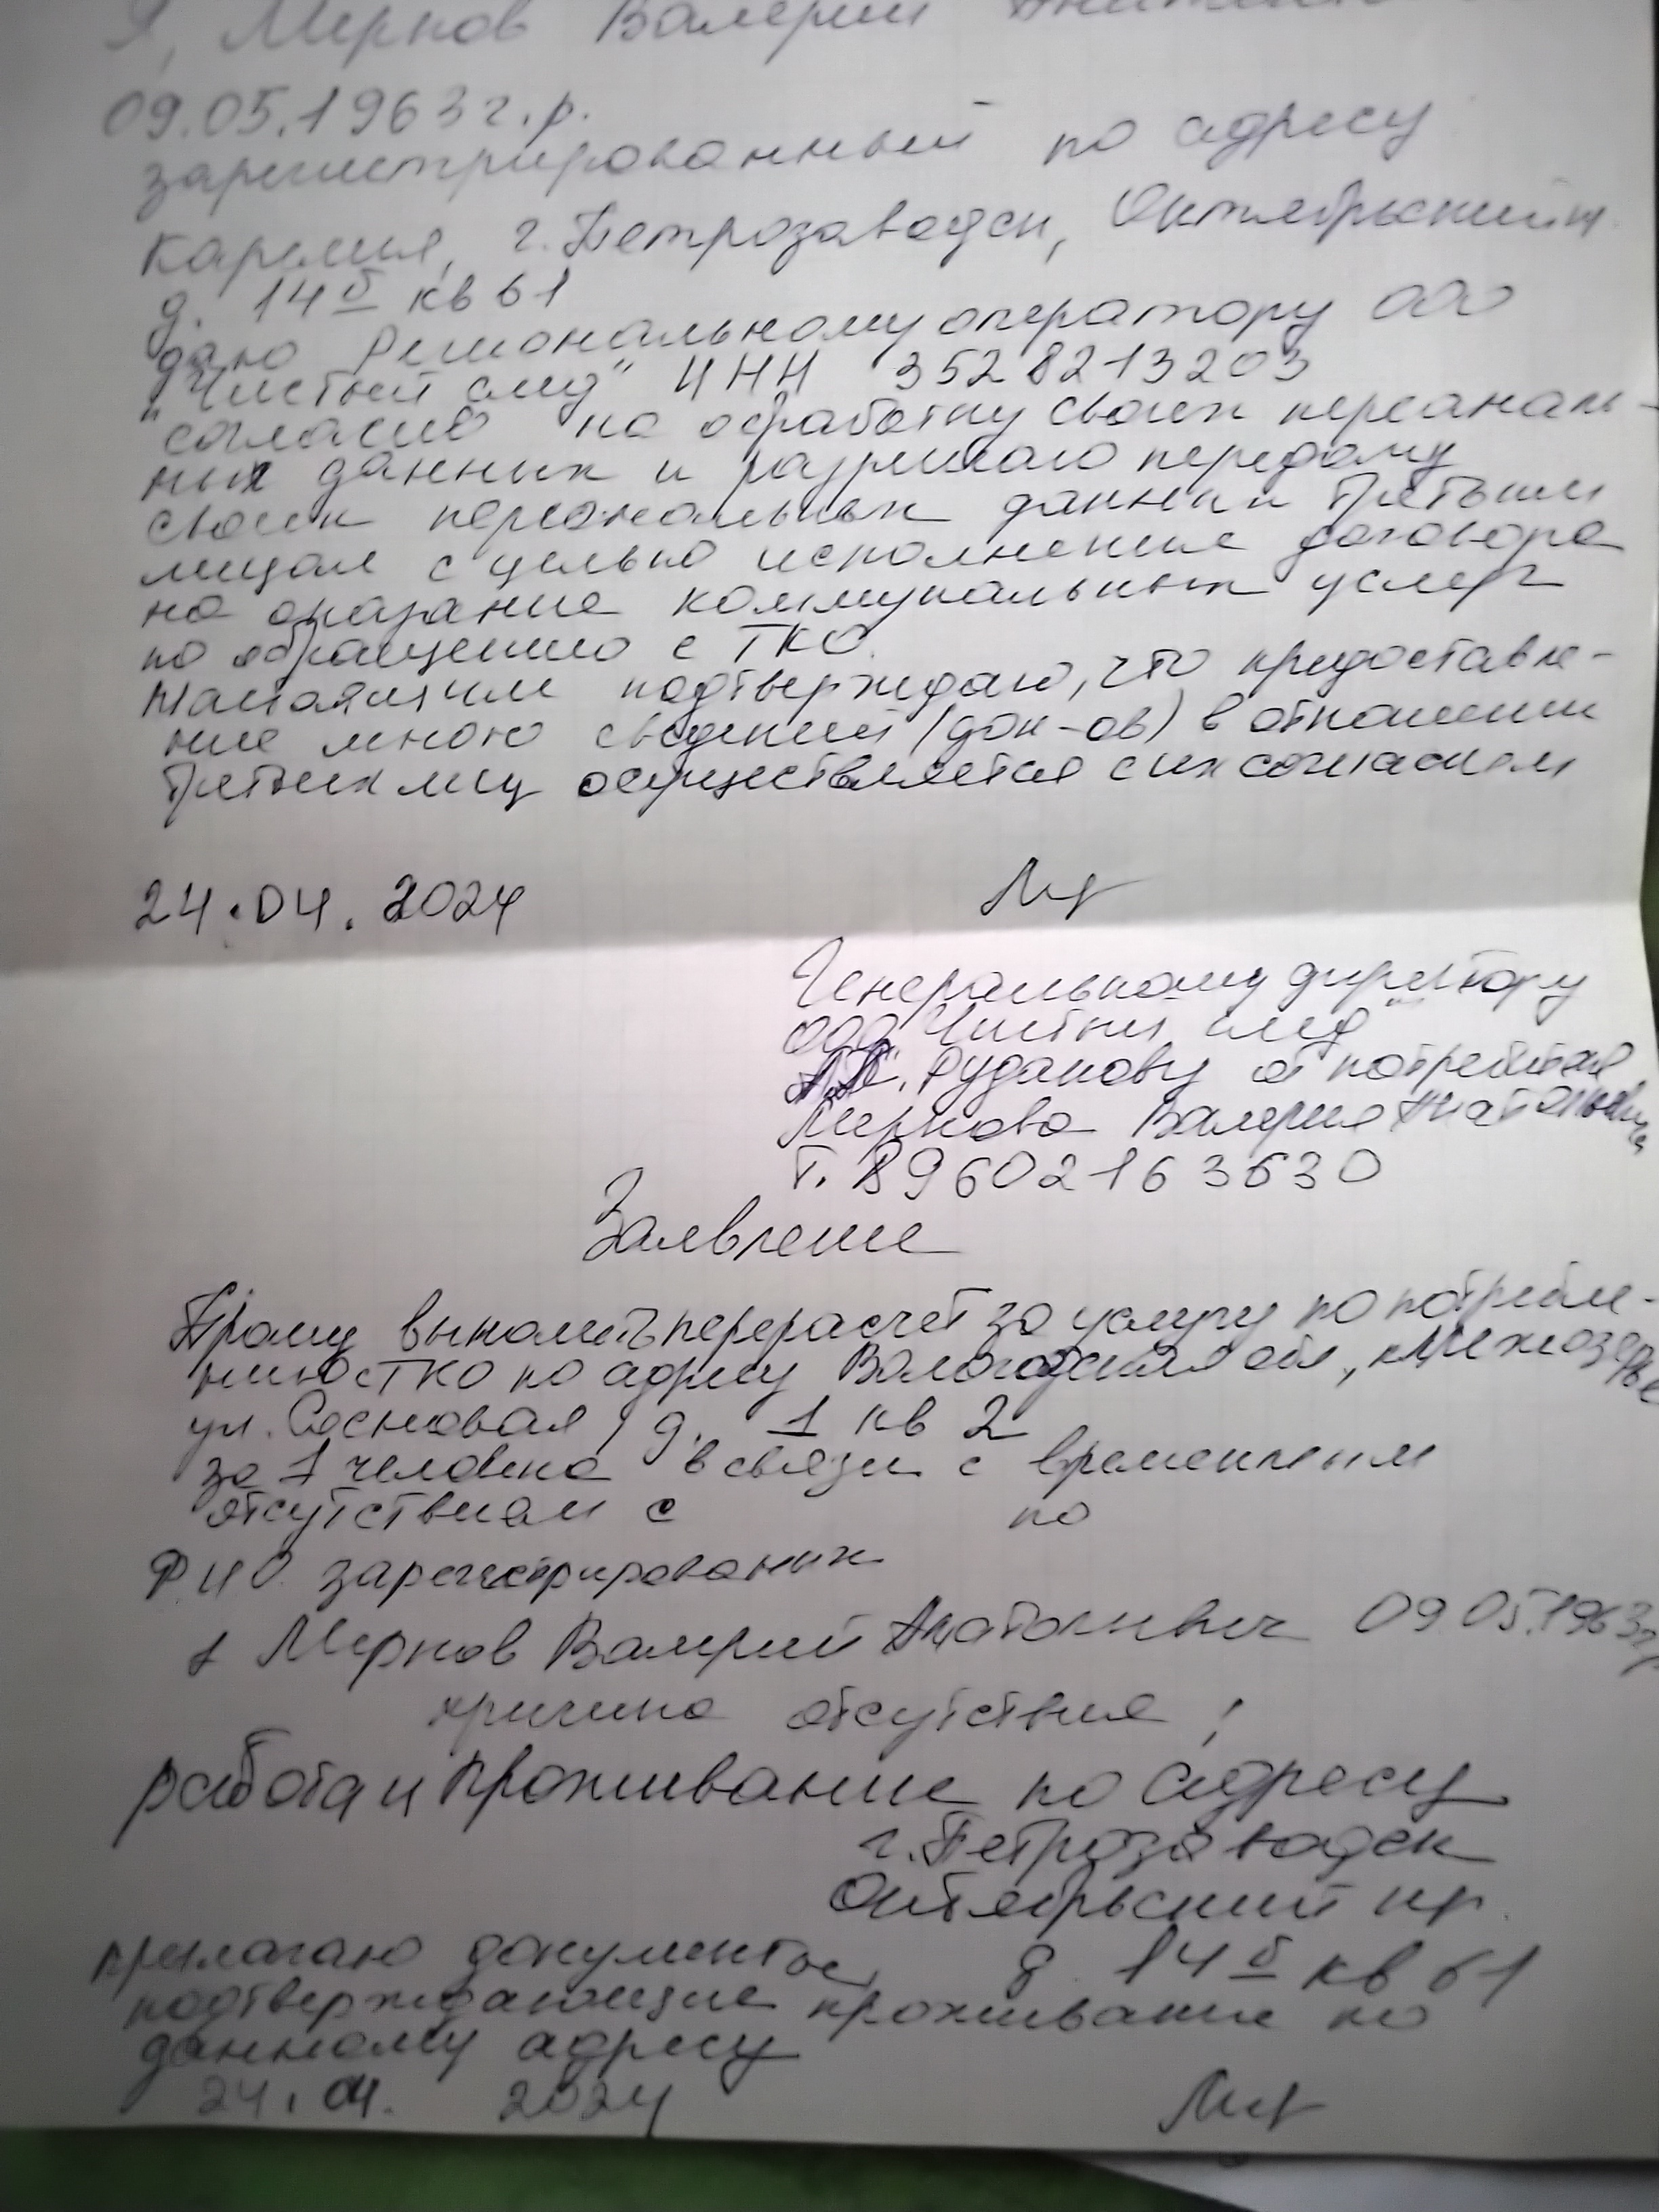 Я, Мирнов Валерий
09.05.1963 г.р.
зарегистрированный по адресу
Карелия, г. Петрозаводск, Октябрьский
д. 14 б кв 61
даю Региональному оператору ООО
"Чистый след" ИНН 3528213203
согласие на обработку своих персональ-
ных данных и разрешаю передачу
своих персональных данных третьим
лицам с целью исполнения договора
на оказание коммунальных услуг
по обращению с ТКО.
Настоящим подтверждаю, что предоставле-
ние мною сведений (док-ов) в отношении
третьих лиц осуществляется с их согласием
24.04.2024
Генеральному директору
ООО "Чистый след"
Рудакову от потребителя
Мирнова Валерия Анатольевича
т. 89602163630
Заявление
Прошу выполнить перерасчёт за услугу по потребле-
нию ТКО по адресу Вологодская обл., п Межозерье
ул. Сосновая, д. 1 кв 2
за 1 человека в связи с временным
отсутствием с по
Ф.И.О. зарегистрированных
1 Мирнов Валерий Анатольевич 09.05.1963г
причина отсутствия:
работа и проживание по адресу
г. Петрозаводск
Октябрьский пр.
д. 14 б кв 61
прилагаю документы,
подтверждающие проживание по
данному адресу
24.04. 2024